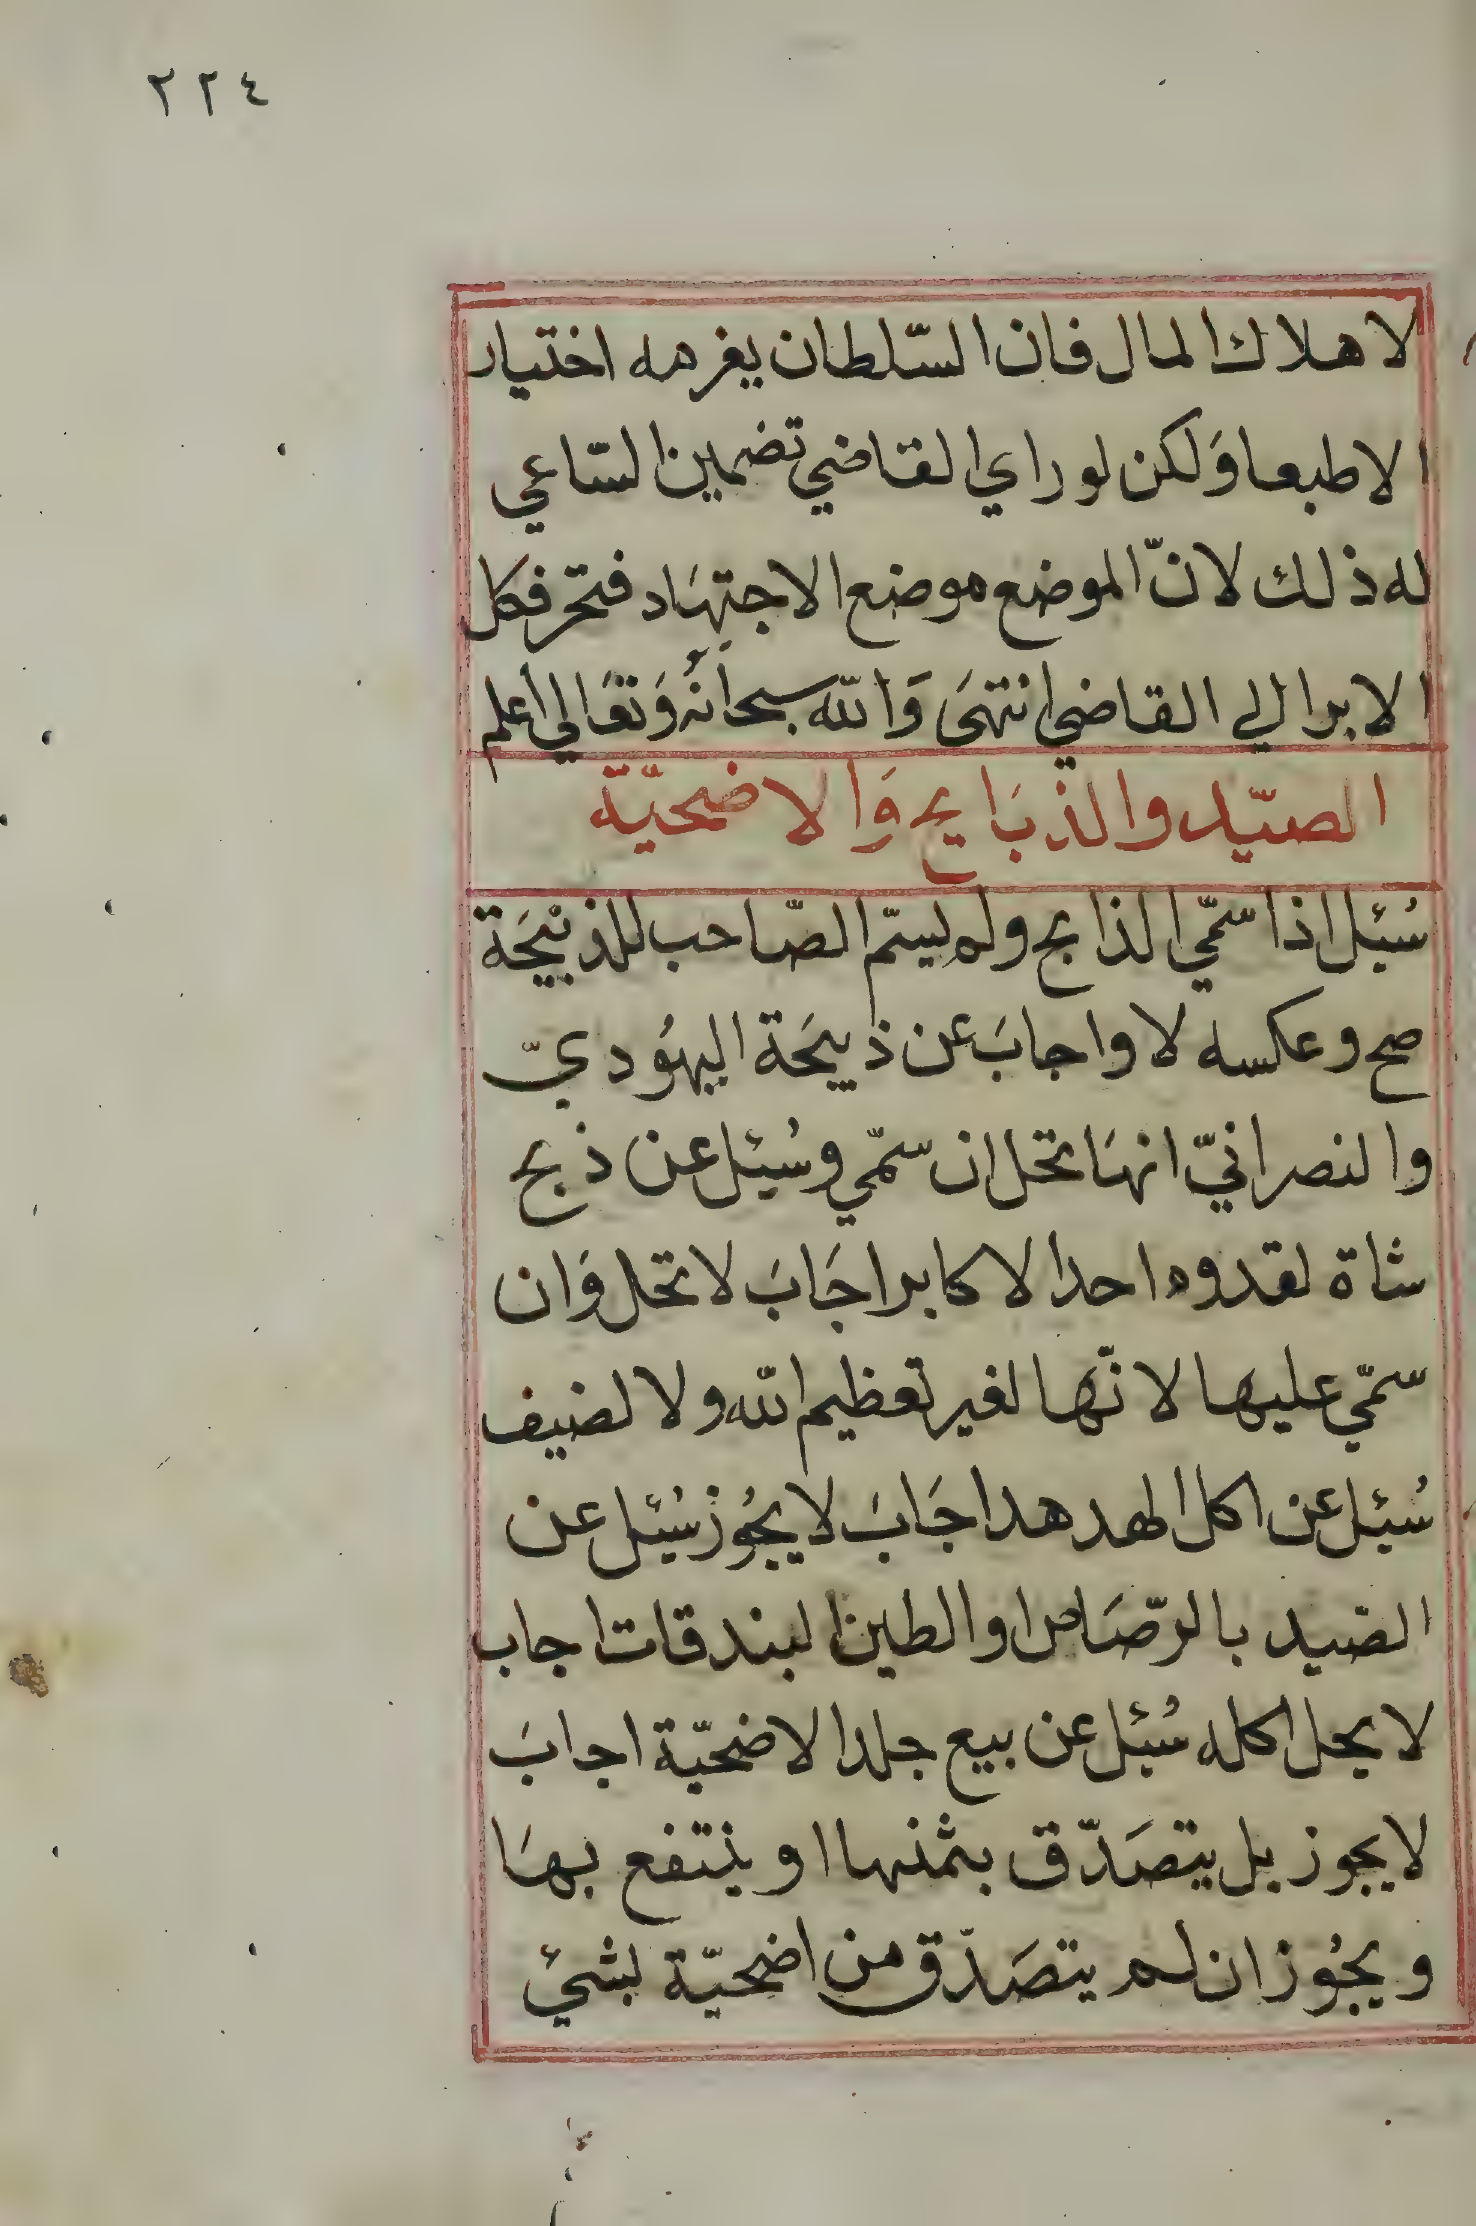 ٢٢٤
لاهلاك المال فان السّلطان يغرمه اختيار
الاطبعا وَلكن لو راي القاضي تضمين السّاعي
له ذلك لانّ الموضع موضع الاجتهَاد فنحن فكل
الامر الي القاضي انتهَى وَالله سبحانهُ وَتعَالي اعلم
الصيّد والذبَايح وَالاضحيّة
سُئل اذا سمّي الذابح ولم يسمّ الصّاحب للذبيحَة
صح وعكسه لا واجابَ عن ذبيحَة اليهُوديّ
والنصرانيّ انهَا تحل ان سمّي وسُئل عن ذبح
شاة لقدوم احد الاكابر اجَابَ لا تحل وَان
سمّي عليها لانّها لغير تعظيم الله ولا لضيف
سُئل عن اكل الهدهد اجَابَ لا يجُوز سُئل عن
الصيد بالرّصَاص او الطين البندقات اجاب
لا يحل اكله سُئل عن بيع جلد الاضحيّة اجابَ
لا يجوز بل يتصَدّق بثمنها او ينتفع بهَا
ويجُوز ان لم يتصَدّق من اضحيّة بشيئ